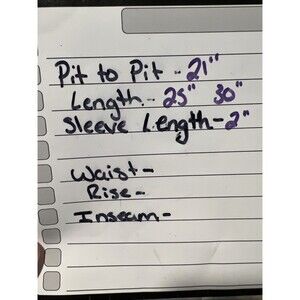 Pit to Pit - 21"
Length - 25" 30"
Sleeve Length - 2"
Waist -
Rise -
Inseam -